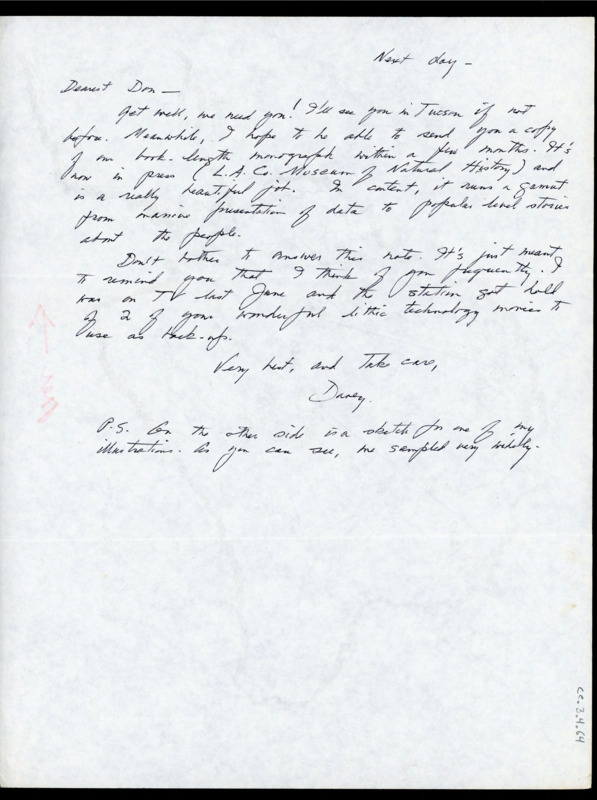 Next day –
Dearest Don —
Get well, we need you! I'll see you in Tucson if not
before. Meanwhile, I hope to be able to send you a copy
of our book-length monograph within a few months. It's
now in press (L.A. Co. Museum of Natural History) and
is a really beautiful job. In content, it runs a gamut
from massive presentation of data to popular level stories
about the people.
Don't bother to answer this note. It's just meant
to remind you that I think of you frequently. I
was on TV last June and the station got hold
of 2 of your wonderful lithic technology movies to
use as back-ups.
Very best, and take care,
Davey.
P.S. On the other side is a sketch for one of my
illustrations. As you can see, we sampled very widely.
cc.3.4.64